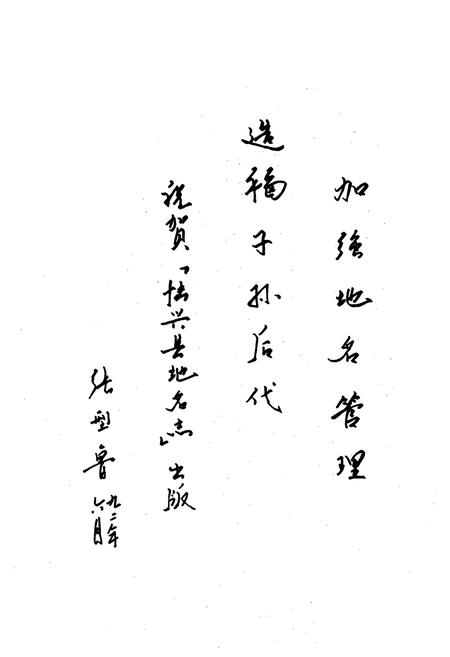 加強地名管理
造福子孙后代
祝賀「兴县地名志」出版
张型鲁
九二年
六月